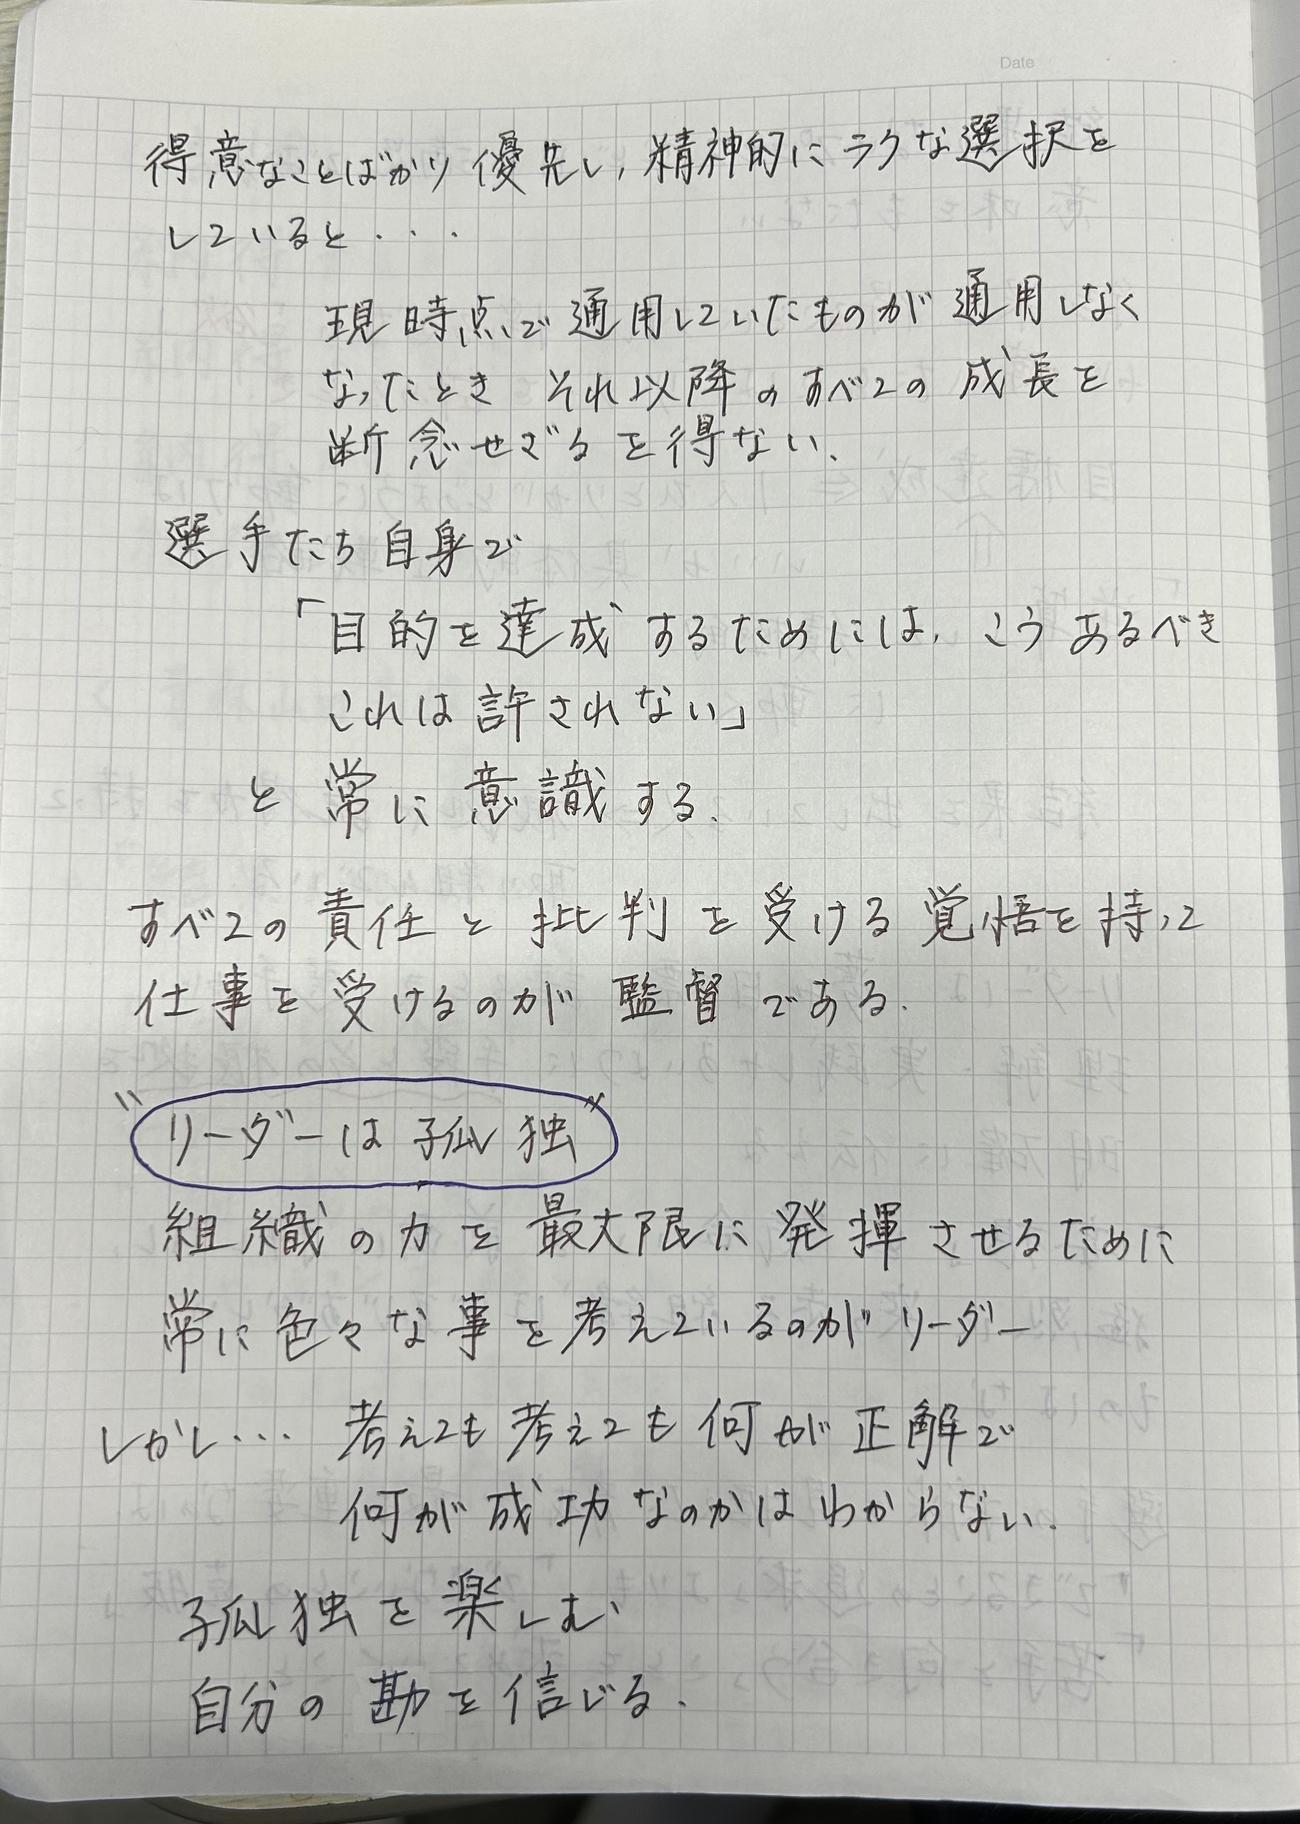 Date
得意なことばかり優先し、精神的にラクな選択を
していると・・・
現時点で通用していたものが通用しなく
なったとき それ以降のすべての成長を
断念せざるを得ない.
選手たち自身で
「目的を達成するためには、こうあるべき
これは許されない」
と常に意識する.
すべての責任と批判を受ける覚悟を持って
仕事を受けるのが監督である.
"リーダーは孤独"
組織の力を最大限に発揮させるために
常に色々な事を考えているのがリーダー
しかし… 考えても考えても何が正解で
何が成功なのかはわからない.
孤独を楽しむ
自分の勘を信じる.